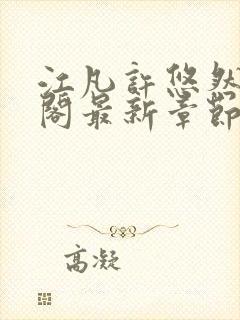 江凡許悠然
閣最新章節
高凝